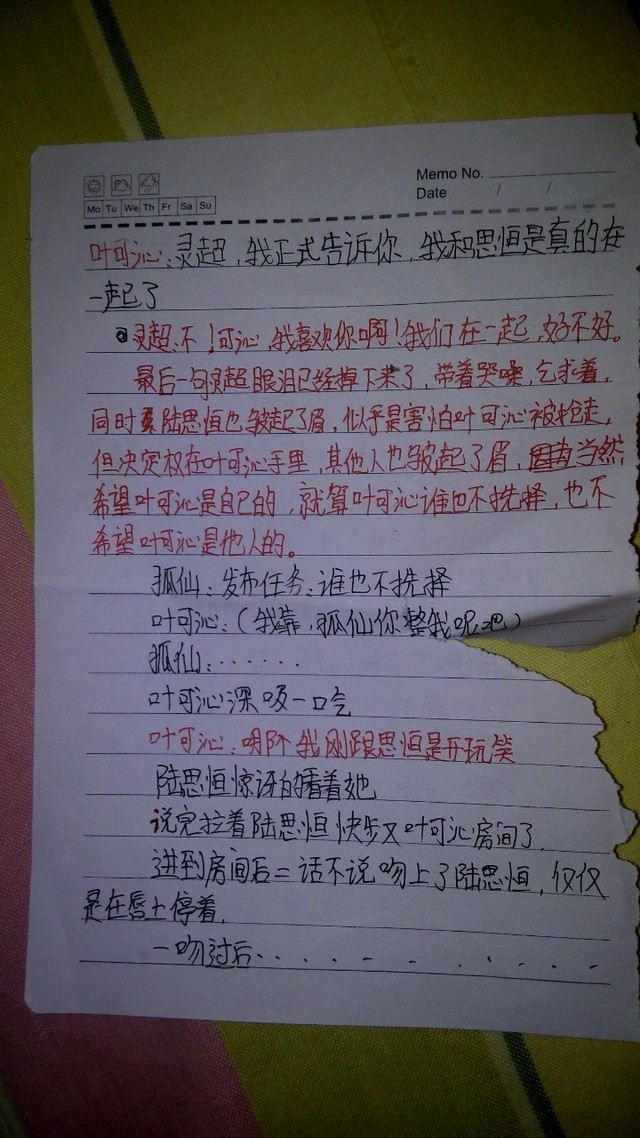 Memo No.
Date / /
Mo Tu We Th Fr Sa Su
叶可沁:灵超,我正式告诉你,我和思恒是真的在
一起了
灵超:不!可沁,我喜欢你啊!我们在一起,好不好。
最后一句灵超眼泪已经掉下来了,带着哭嗓,乞求着,
同时陆思恒也皱起了眉,似乎是害怕叶可沁被抢走,
但决定权在叶可沁手里,其他人也皱起了眉,当然
希望叶可沁是自己的,就算叶可沁谁也不挑择,也不
希望叶可沁是他人的。
狐仙:发布任务:谁也不挑择
叶可沁:(我靠,狐仙你整我呢吧)
狐仙:······
叶可沁深吸一口气
叶可沁:明阵我刚跟思恒是开玩笑
陆思恒惊讶的看着她
说完拉着陆思恒快步叶可沁房间了.
进到房间后二话不说吻上了陆思恒,仅仅
是在唇上停着.
一吻过后.........